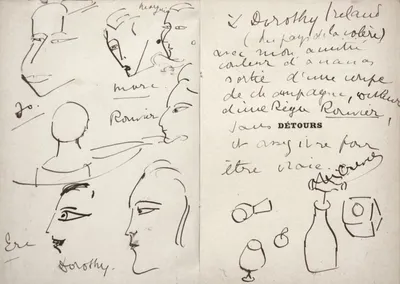 Marc
Rouvier
Jo.
Eri
Dorothy.
à Dorothy Ireland
(du pays de la colère)
avec mon amitié
couleur d'ananas
sortie d'une coupe
de champagne,
d'une Régie Rouvier,
sans DÉTOURS
et assez ivre pour
être vraie.